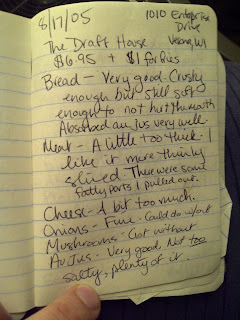 8/17/05 1010 Enterprise
Drive
The Draft House Verona, WI
$6.95 + $1 for fries
Bread - Very good. Crusty
enough but still soft
enough to not hurt my mouth
Absorbed au jus very well
Meat - A little too thick. I
like it more thinly
sliced. There were some
fatty parts I pulled out.
Cheese - A bit too much.
Onions - Fine. Could do w/out
Mushrooms - Got without
Au Jus - Very good. Not too
salty, plenty of it.